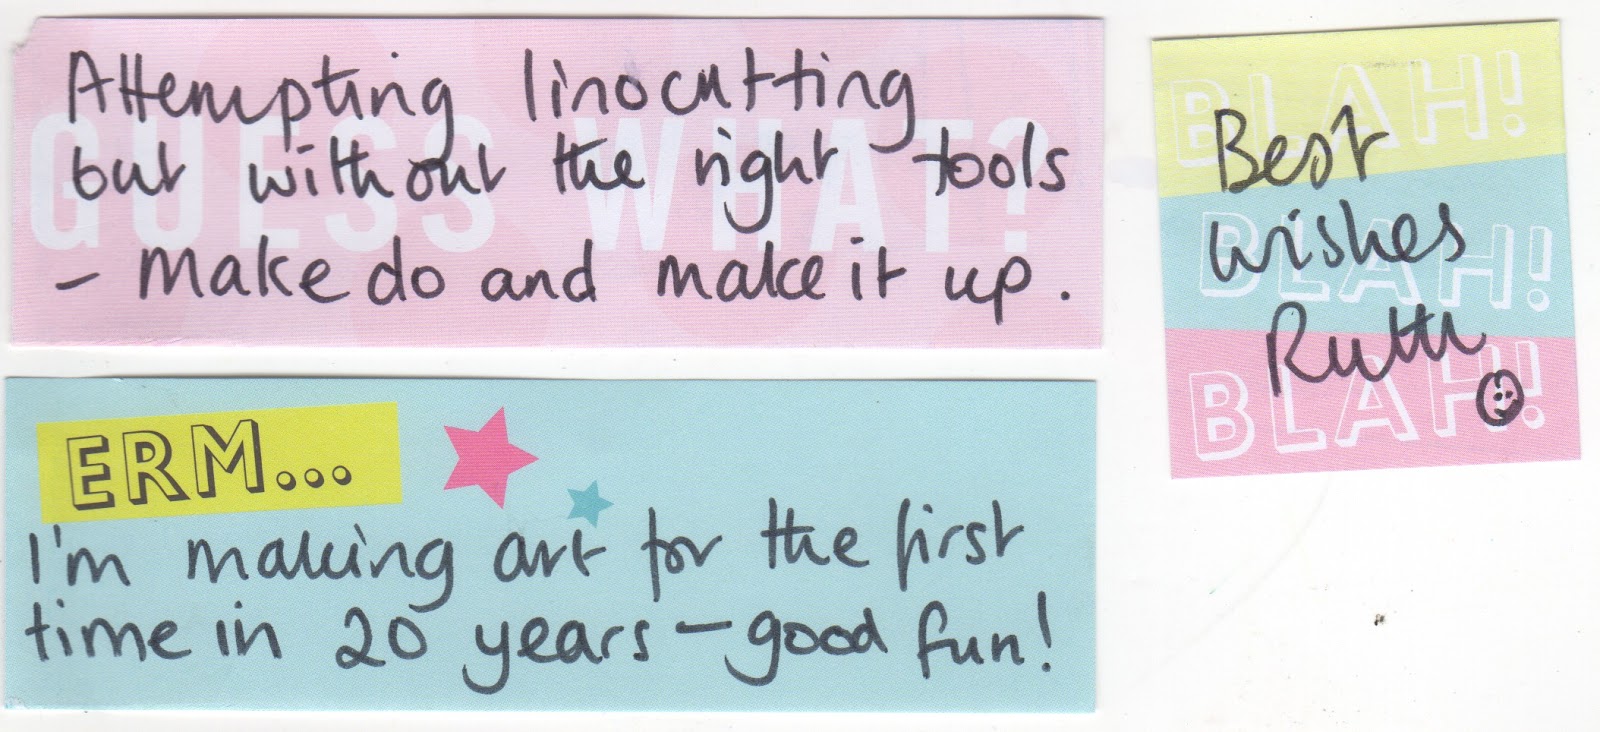 GUESS WHAT?
Attempting linocutting
but without the right tools
- Make do and make it up.
ERM...
I'm making art for the first
time in 20 years - good fun!
BLAH!
BLAH!
BLAH!
Best
wishes
Ruth